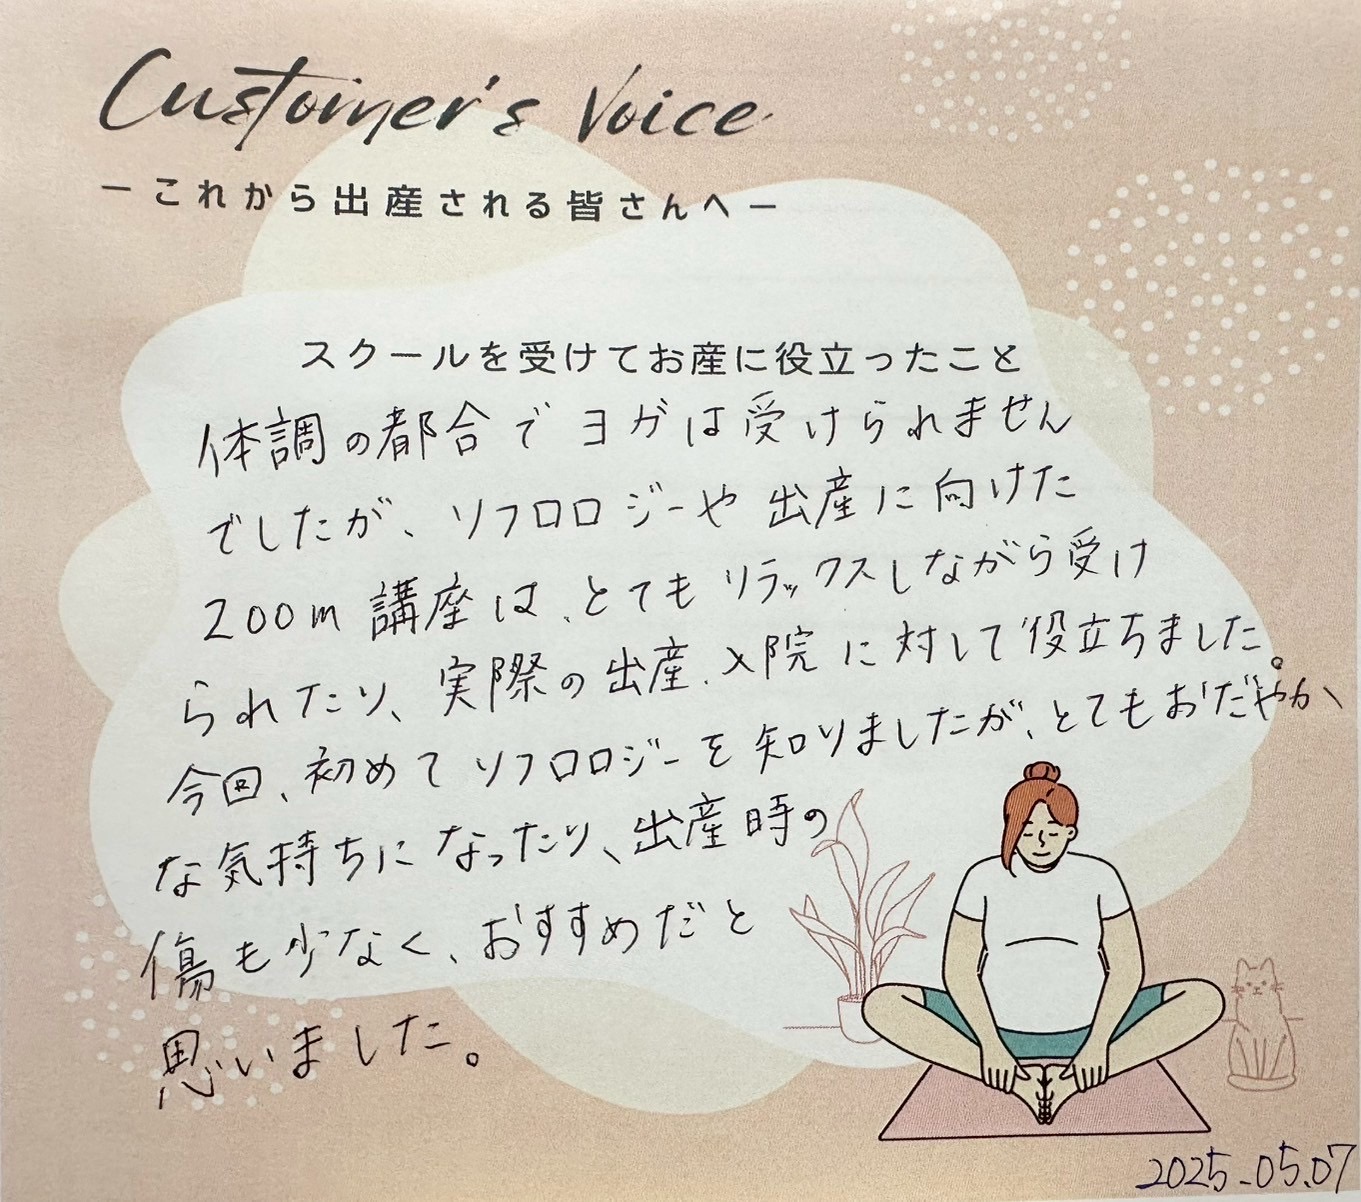 Customer's Voice
ーこれから出産される皆さんへー
スクールを受けてお産に役立ったこと
体調の都合でヨガは受けられません
でしたが、ソフロロジーや出産に向けた
zoom講座は、とてもリラックスしながら受け
られたり、実際の出産、入院に対して役立ちました。
今回、初めてソフロロジーを知りましたが、とてもおだやか
な気持ちになったり、出産時の
傷も少なく、おすすめだと
思いました。
2025.05.07